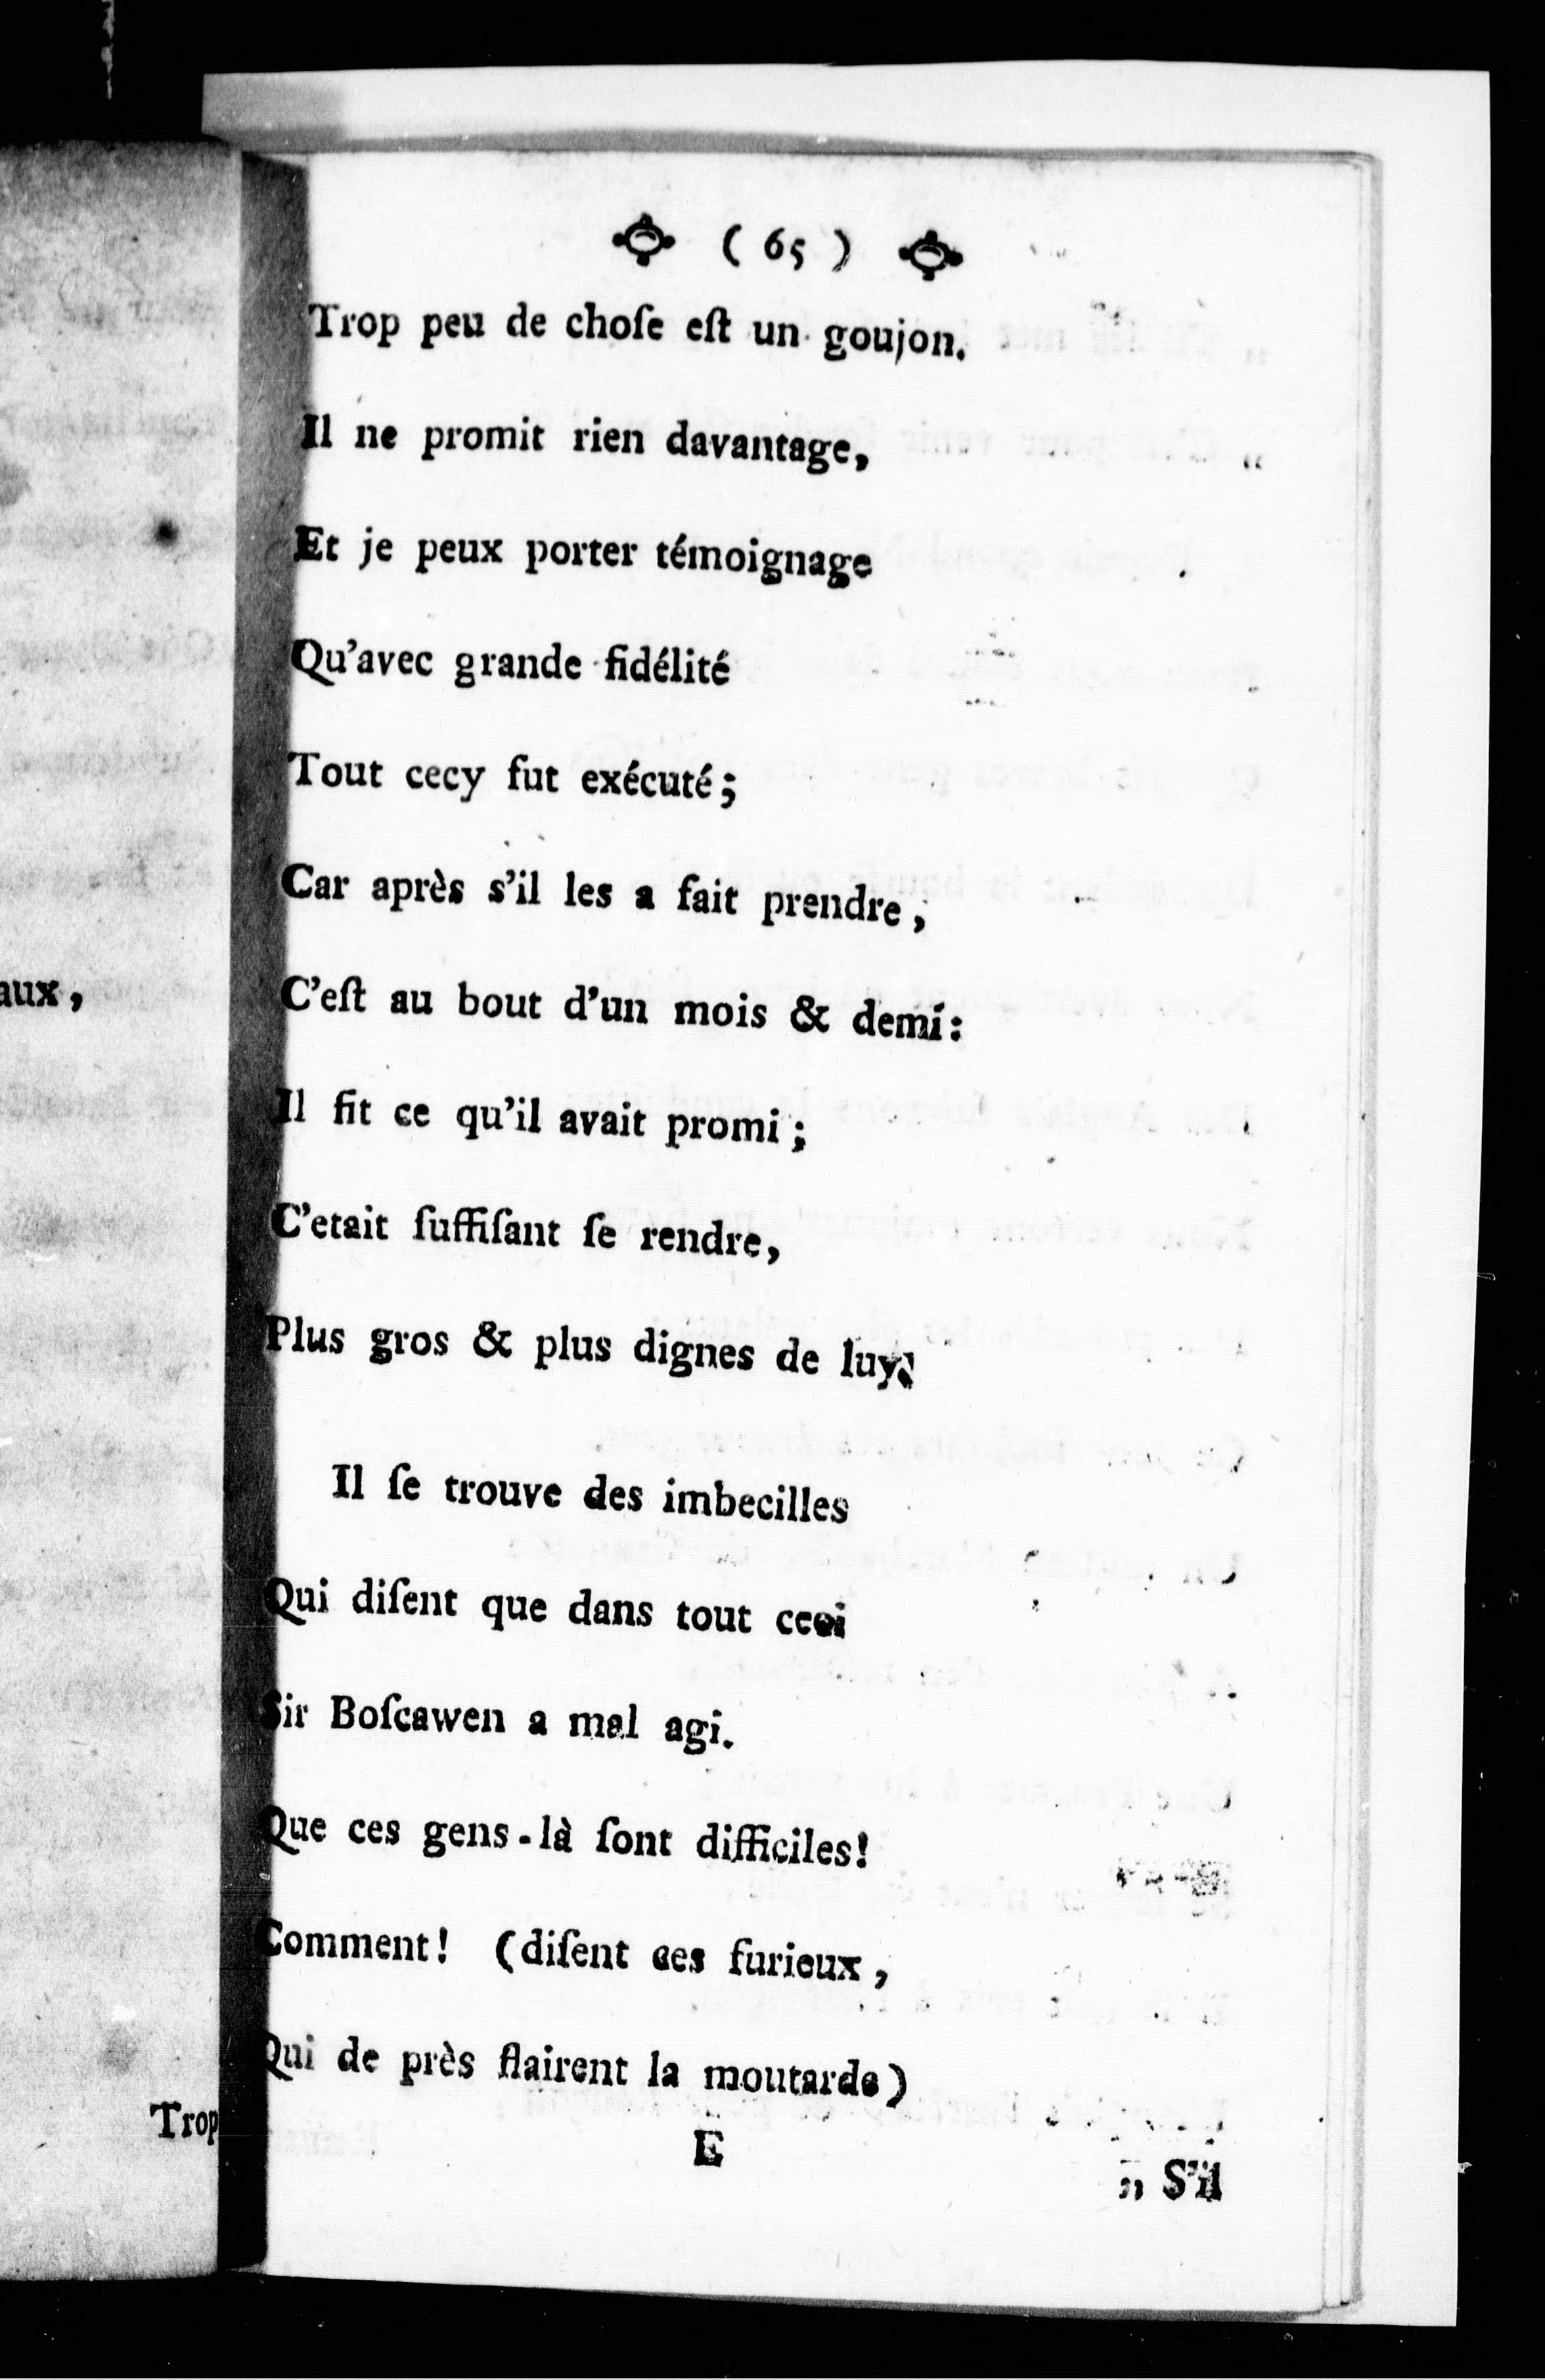 ( 65 )
Trop peu de choſe eſt un goujon.
Il ne promit rien davantage,
Et je peux porter témoignage
Qu'avec grande fidélité
Tout cecy fut exécuté;
Car après s'il les a fait prendre,
C'eſt au bout d'un mois & demi:
Il fit ce qu'il avait promi;
C'etait ſuffiſant ſe rendre,
Plus gros & plus dignes de luy.
Il ſe trouve des imbecilles
Qui diſent que dans tout ceci
Sir Boſcawen a mal agi.
Que ces gens-là ſont difficiles!
Comment! (diſent ces furieux,
Qui de près flairent la moutarde)
E
„ S'il
aux,
Trop